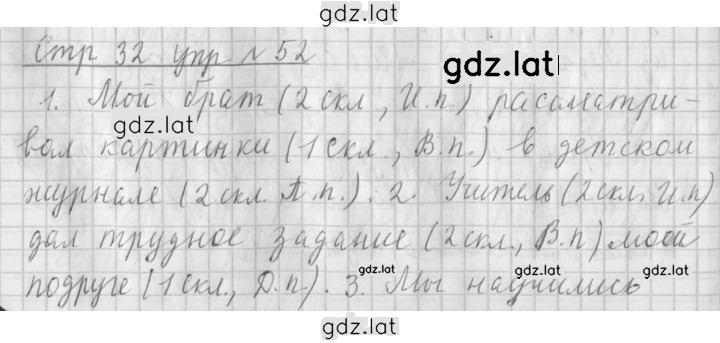 gdz.lat
Стр 32 упр № 52
gdz.lat
1. Мой брат (2 скл., И.п.) рассматри-
gdz.lat
вал картинки (1 скл., В.п.) в детском
журнале (2 скл. П.п.). 2. Учитель (2 скл. И.п)
дал трудное задание (2 скл., В.п) моей
gdz.lat gdz.lat gdz.lat
подруге (1 скл., Д.п.). 3. Мы научились
gdz.lat